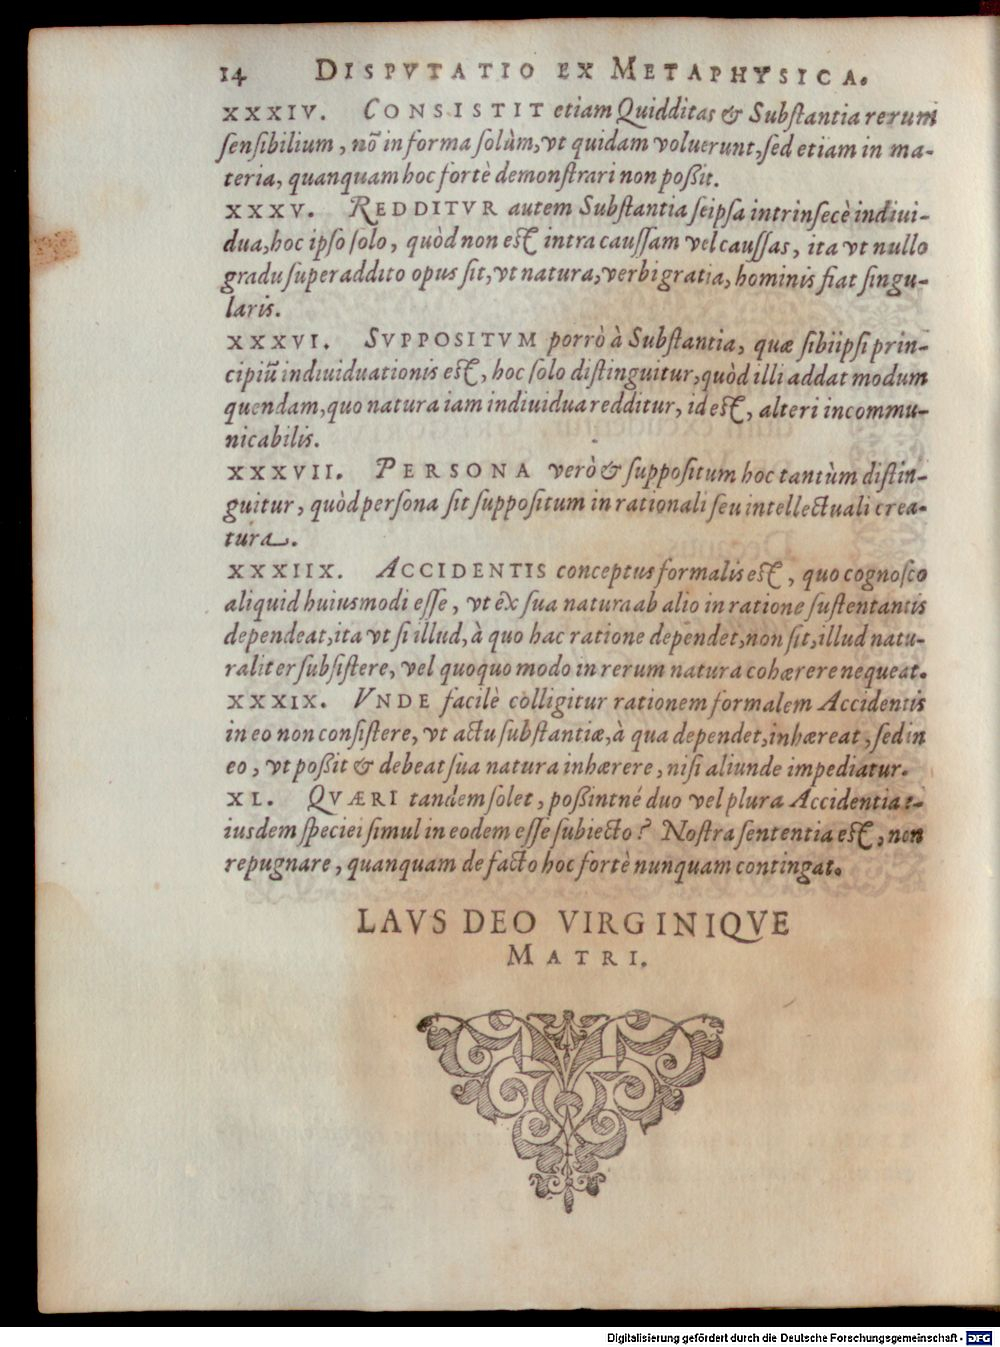 14 DISPVTATIO EX METAPHYSICA.
XXXIV. CONSISTIT etiam Quidditas & Substantia rerum
sensibilium, nõ in forma solùm, vt quidam voluerunt, sed etiam in ma-
teria, quanquam hoc fortè demonstrari non poßit.
XXXV. REDDITVR autem Substantia seipsa intrinsecè indiui-
dua, hoc ipso solo, quòd non est intra caussam vel caussas, ita vt nullo
gradu superaddito opus sit, vt natura, verbi gratia, hominis fiat singu-
laris.
XXXVI. SVPPOSITVM porrò à Substantia, quæ sibiipsi prin-
cipiũ indiuiduationis est, hoc solo distinguitur, quòd illi addat modum
quendam, quo natura iam indiuidua redditur, id est, alteri incommu-
nicabilis.
XXXVII. PERSONA verò & suppositum hoc tantùm distin-
guitur, quòd persona sit suppositum in rationali seu intellectuali crea-
tura.
XXXIIX. ACCIDENTIS conceptus formalis est, quo cognosco
aliquid huiusmodi esse, vt ex sua natura ab alio in ratione sustentantis
dependeat, ita vt si illud, à quo hac ratione dependet, non sit, illud natu-
raliter subsistere, vel quoquo modo in rerum natura cohærere nequeat.
XXXIX. VNDE facilè colligitur rationem formalem Accidentis
in eo non consistere, vt actu substantiæ, à qua dependet, inhæreat, sed in
eo, vt poßit & debeat sua natura inhærere, nisi aliunde impediatur.
XL. QVÆRI tandem solet, poßintné duo vel plura Accidentia e-
iusdem speciei simul in eodem esse subiecto? Nostra sententia est, non
repugnare, quanquam de facto hoc fortè nunquam contingat.
LAVS DEO VIRGINIQVE
MATRI.
Digitalisierung gefördert durch die Deutsche Forschungsgemeinschaft - DFG